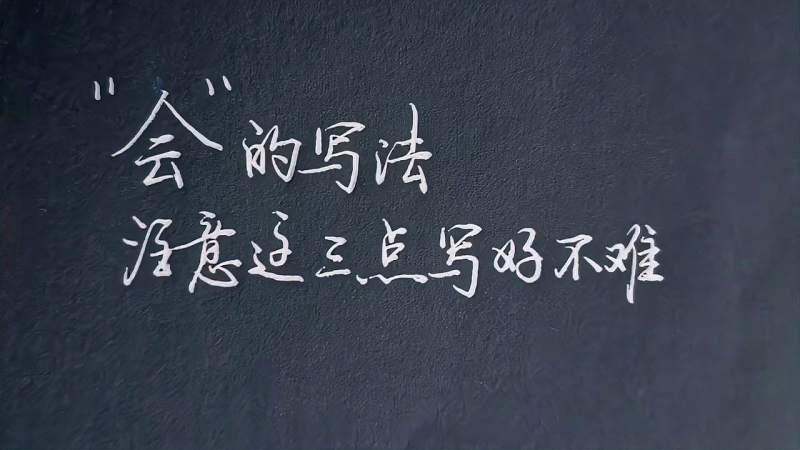 “会”的写法
注意这三点写好不难